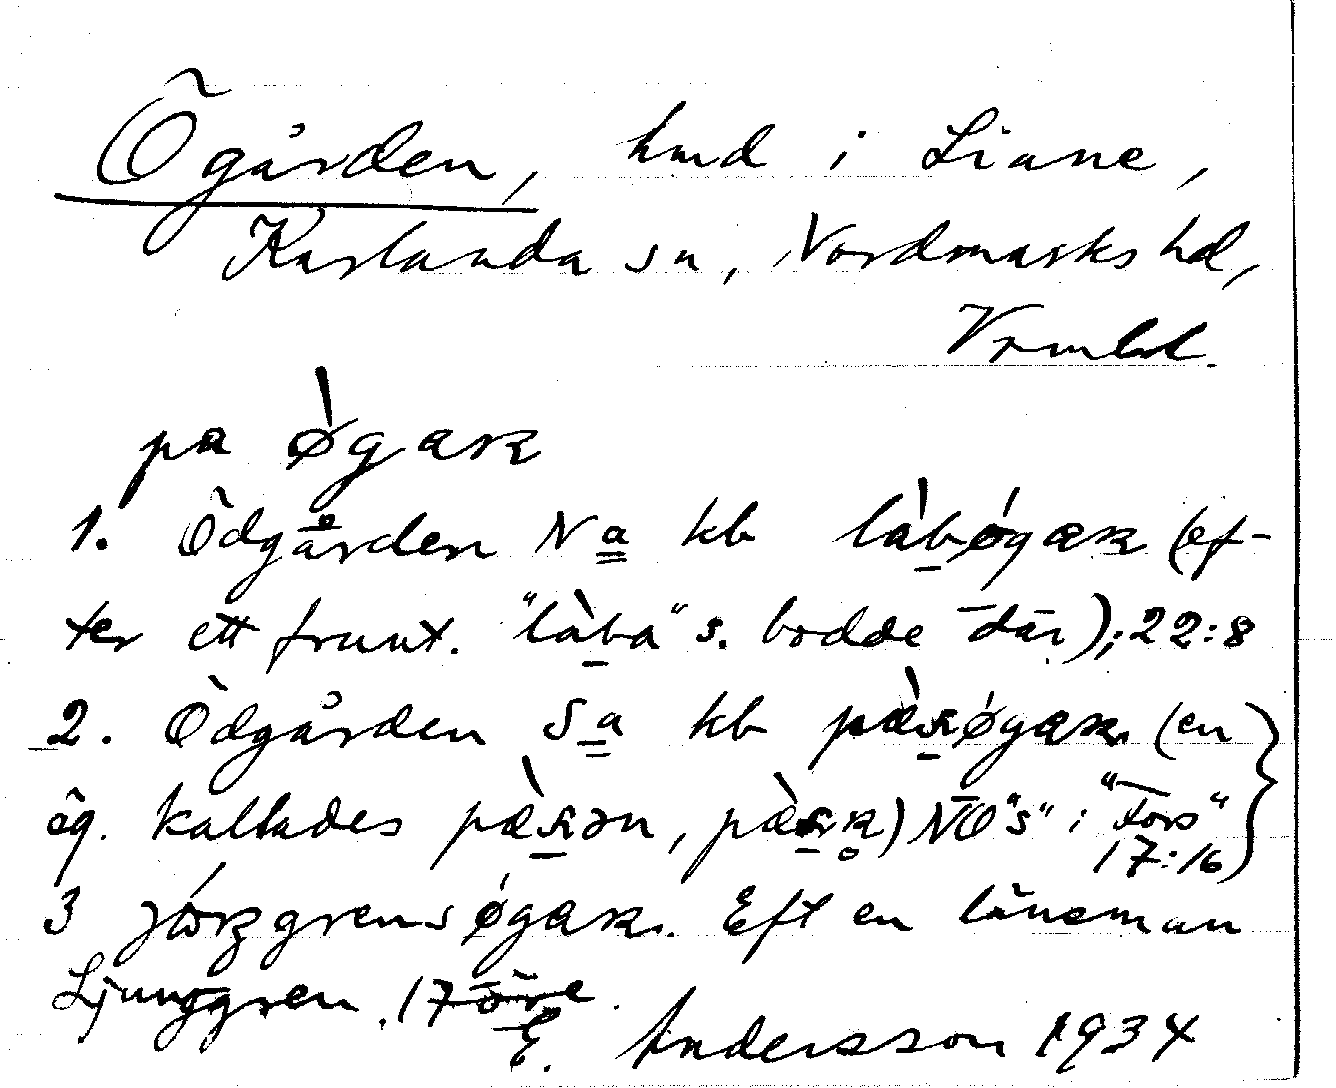 Ögården, hmd i Liane,
Karlanda sn, Nordmarks hd,
Vrmld.
pa øgaʀ
1. Ödgården Na kb làbøgæʀ (ef-
ter ett frunt. "làba" s. bodde där); 22:8
2. Ödgården Sa kb pæ̀søgæʀ (en
äg. kallades pæ̀sən, ) NO "s" i "Fors"
17:16
3 øgæʀ. Eft en länsman
Ljunggren. 17
E. Andersson 1934